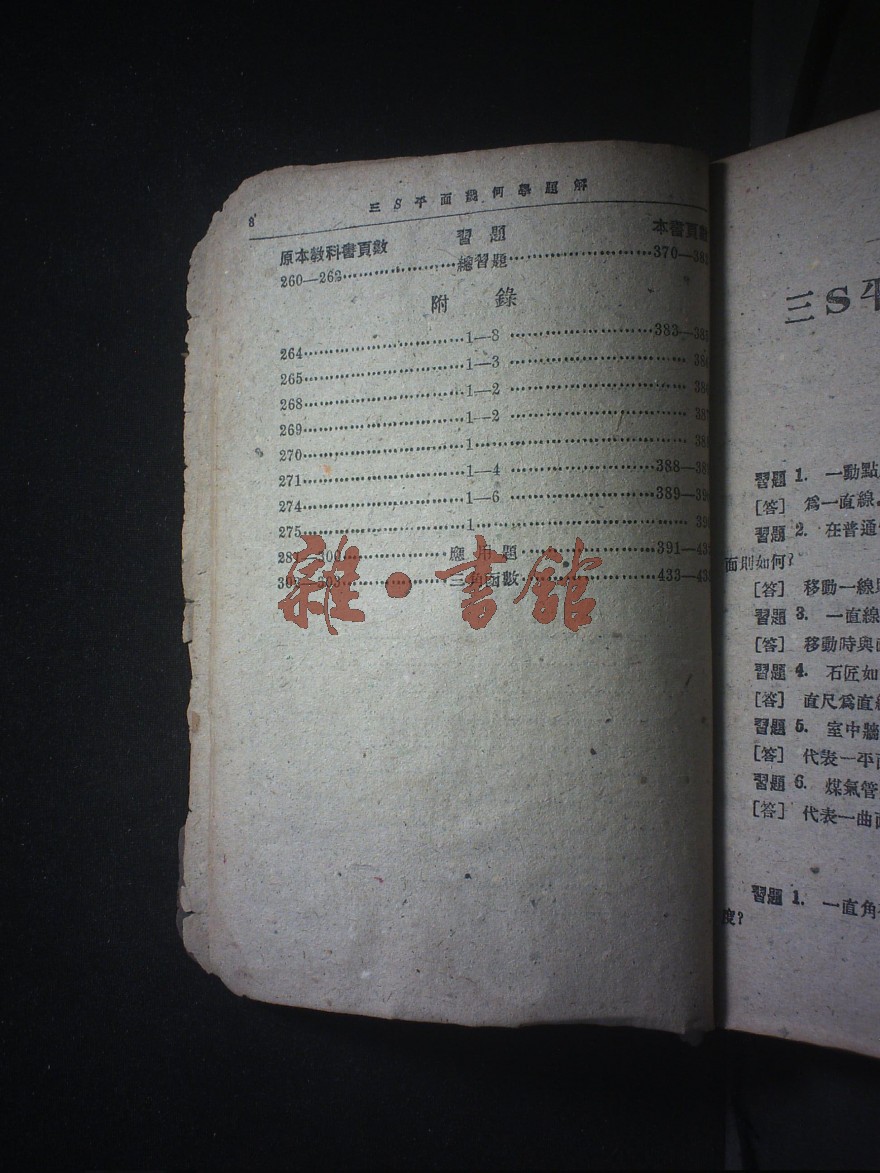 8
三S平面幾何學題解
原本教科書頁數 習題 本書頁數
260—262 總習題 370—
附錄
264 1—8 383—
265 1—3
268 1—2
269 1—2
270 1
271 1—4 388—
274 1—6 389—
275 1
281—300 應用題 391—
302—303 三角函數 433—
雜·書館
三S平
習題 1. 一動點
[答] 爲一直線
習題 2. 在普通
面則如何?
[答] 移動一線
習題 3. 一直線
[答] 移動時與
習題 4. 石匠如
[答] 直尺爲直
習題 5. 室中牆
[答] 代表一平
習題 6. 煤氣管
[答] 代表一曲
習題 1. 一直角
度?